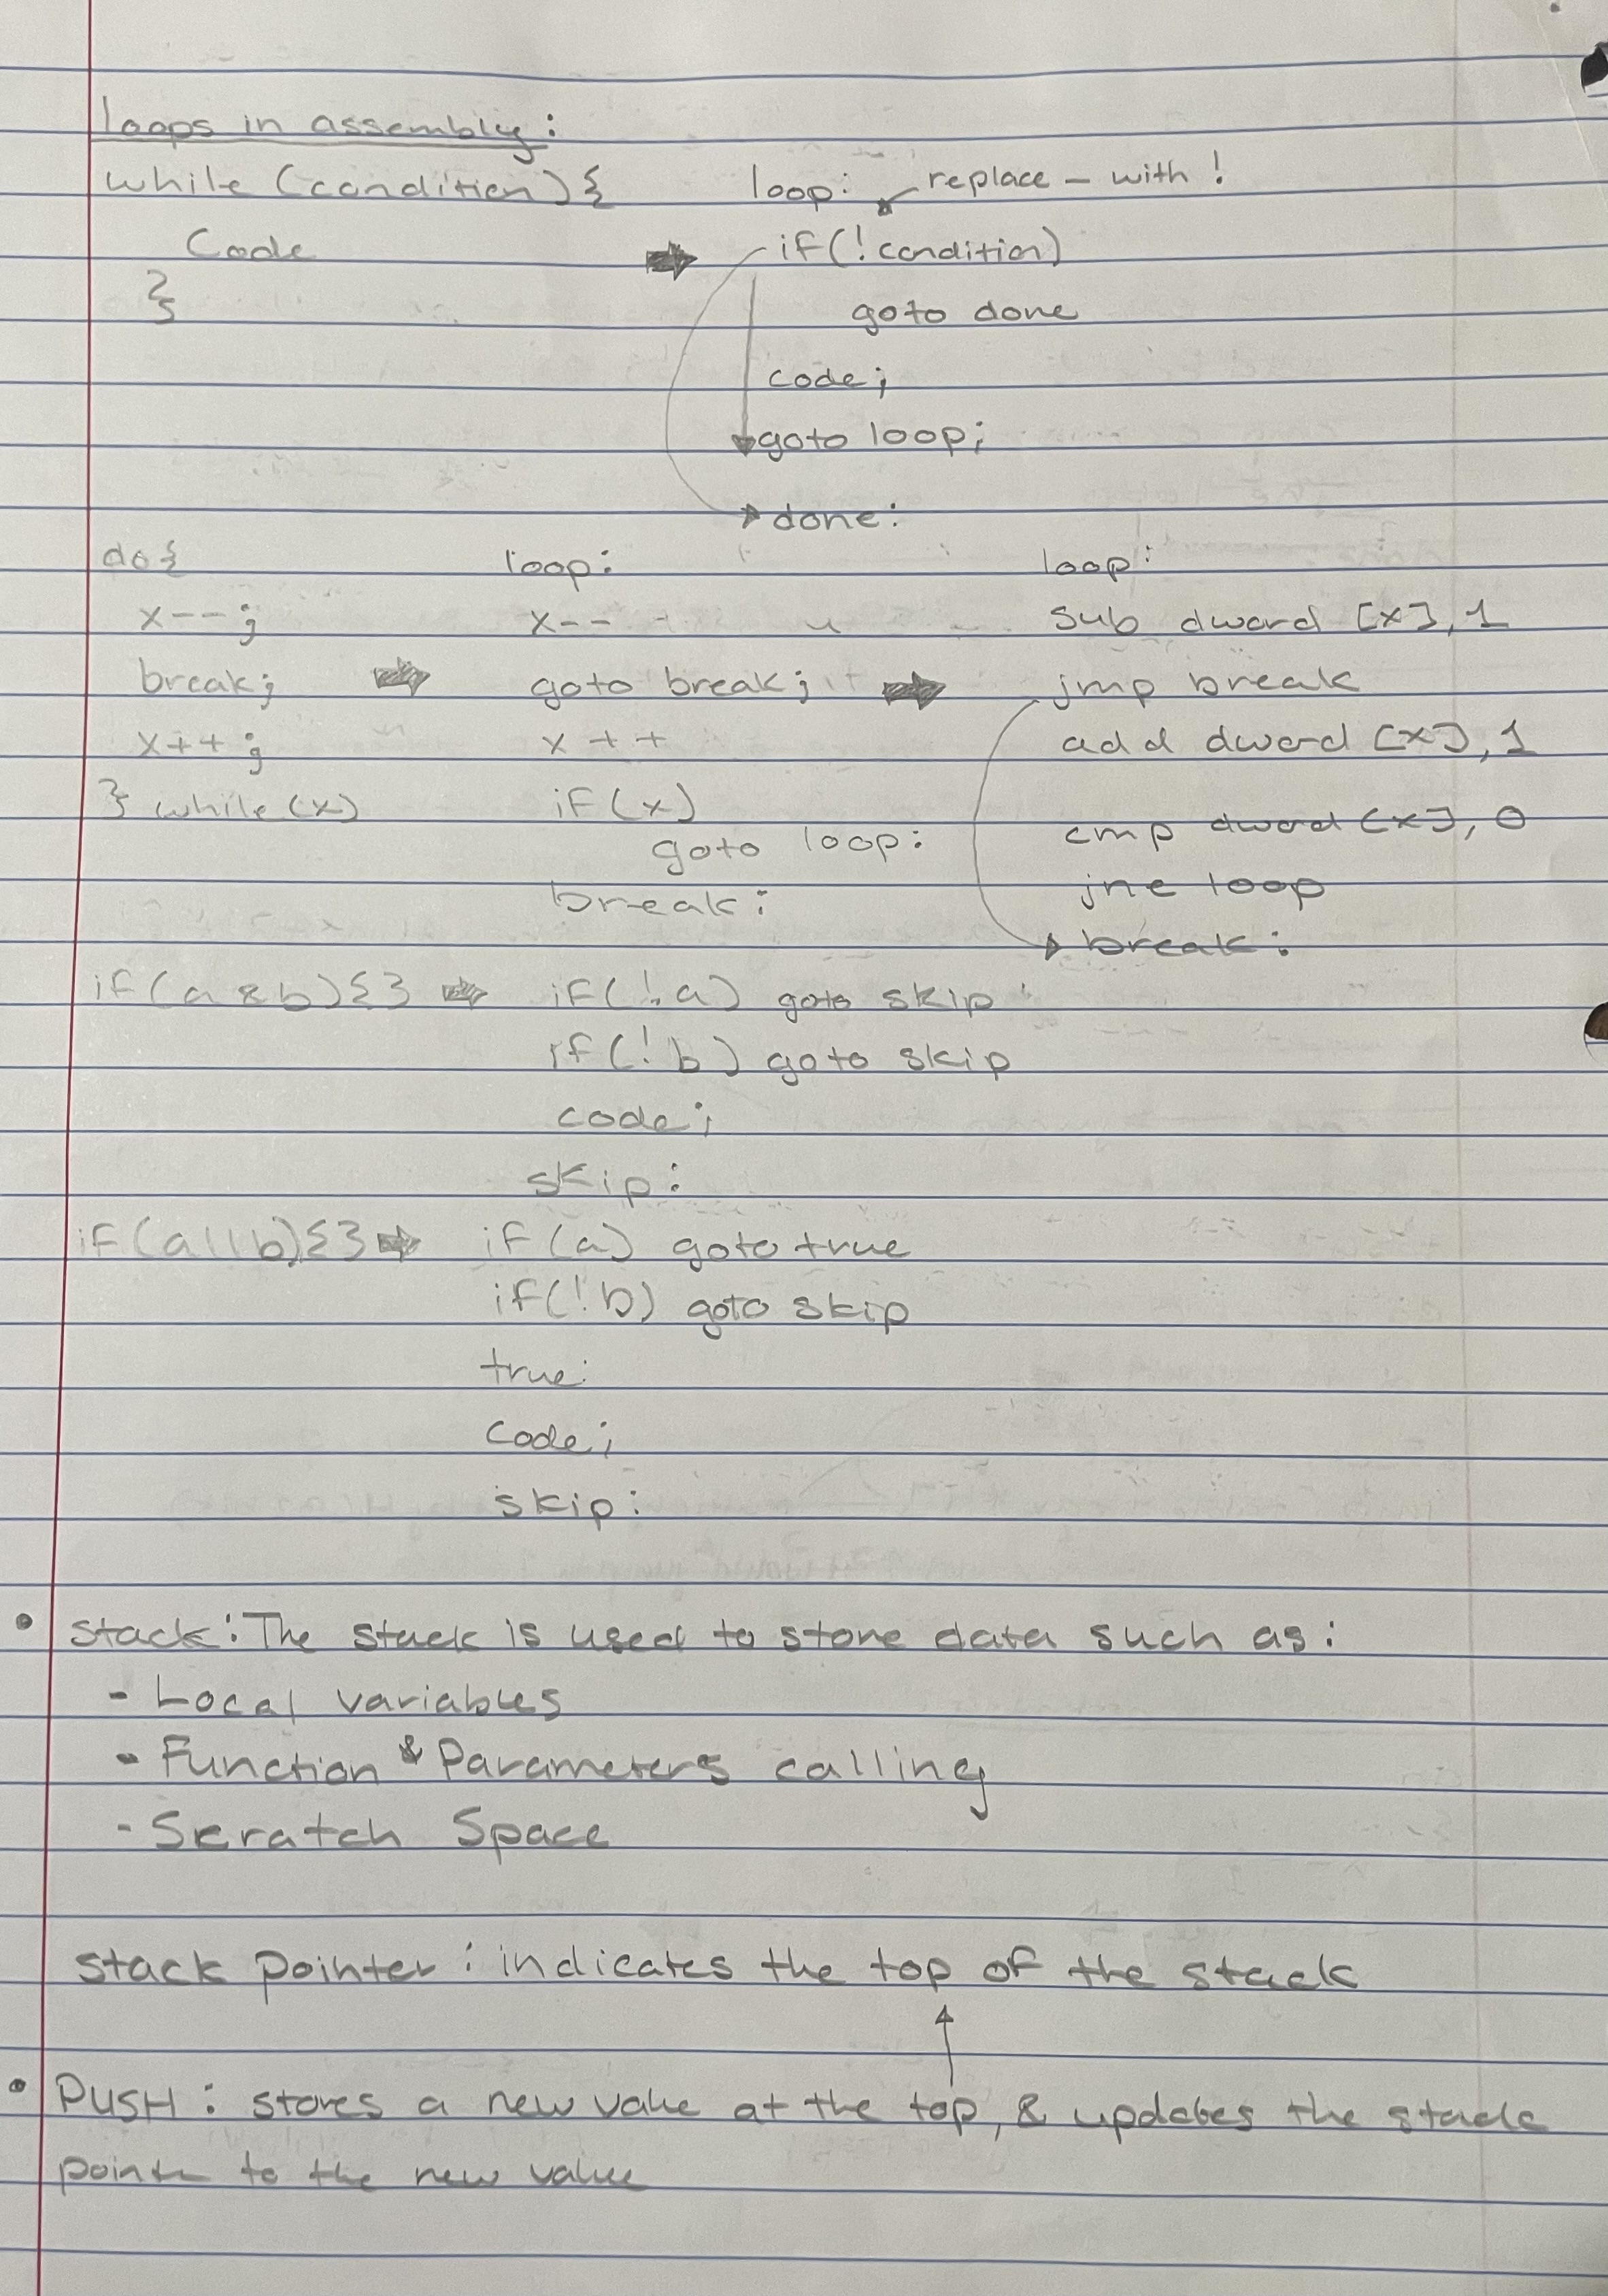 loops in assembly:
while (condition) {
loop: replace - with !
Code
if(! condition)
}
goto done
code;
goto loop;
done:
do {
loop:
loop:
x--;
x--
sub dword [x], 1
break;
goto break;
jmp break
x++;
x++
add dword [x], 1
} while (x)
if (x)
cmp dword [x], 0
goto loop:
jne loop
break:
break:
if (a & b) {} if(!a) goto skip
if(!b) goto skip
code;
skip:
if (a||b) {} if (a) goto true
if(!b) goto skip
true:
code;
skip:
• stack: The stack is used to store data such as:
- Local variables
- Function & Parameters calling
- Scratch Space
stack pointer: indicates the top of the stack
• PUSH: stores a new value at the top, & updates the stack
pointer to the new value